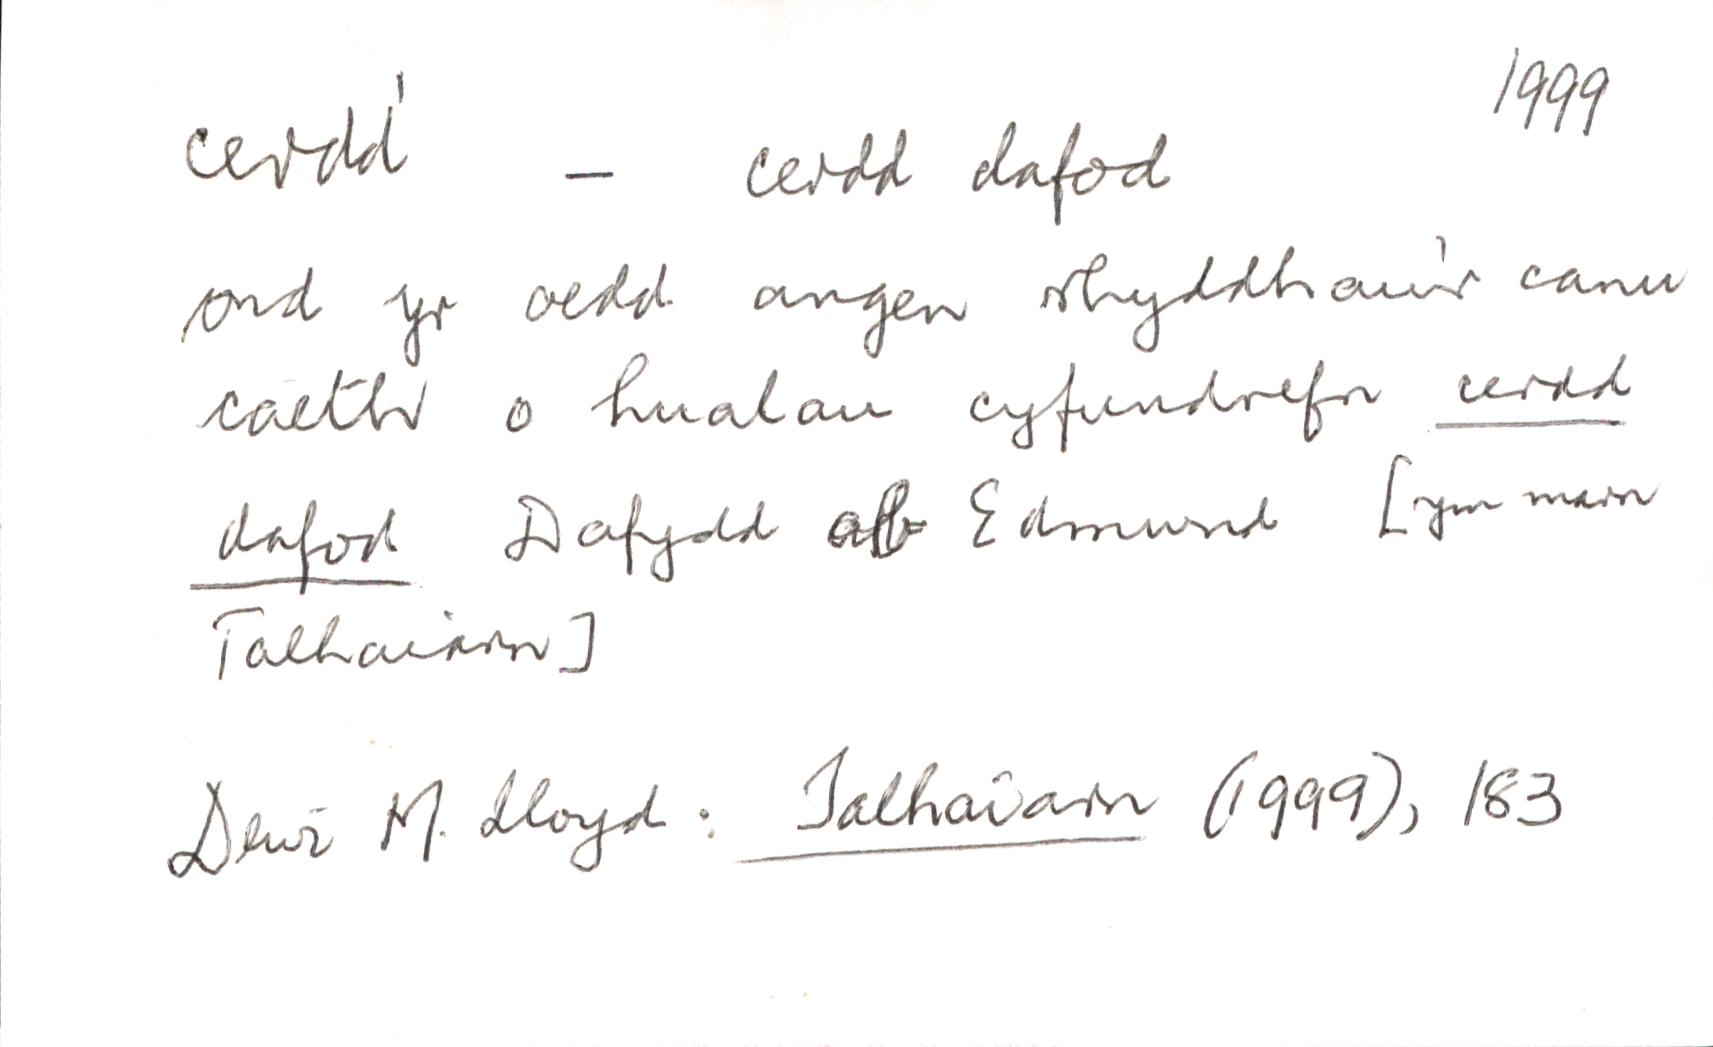 1999
cerdd' – cerdd dafod
ond yr oedd angen rhyddhau'r canu
caeth o hualau cyfundrefn cerdd
dafod Dafydd ab Edmund [ym marn
Talhaiarn]
Dewi M. Lloyd: Talhaiarn (1999), 183